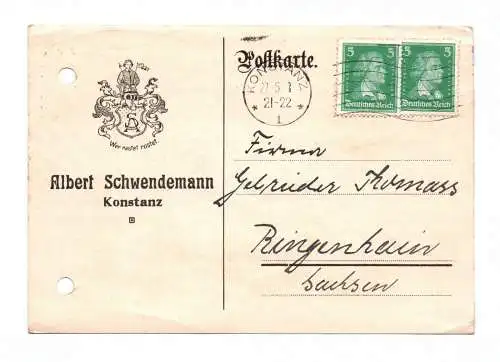 Wer rastet rostet
SA
Albert Schwendemann
Konstanz
Postkarte.
KONSTANZ
21-22
* 1 *
5 5
Deutsches Reich
5 5
Deutsches Reich
Firma
Gebrüder Thomass
Ringenhain
Sachsen